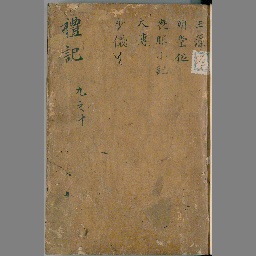 玉藻
明堂位
喪服小記
大傳
少儀共
禮記
九之十